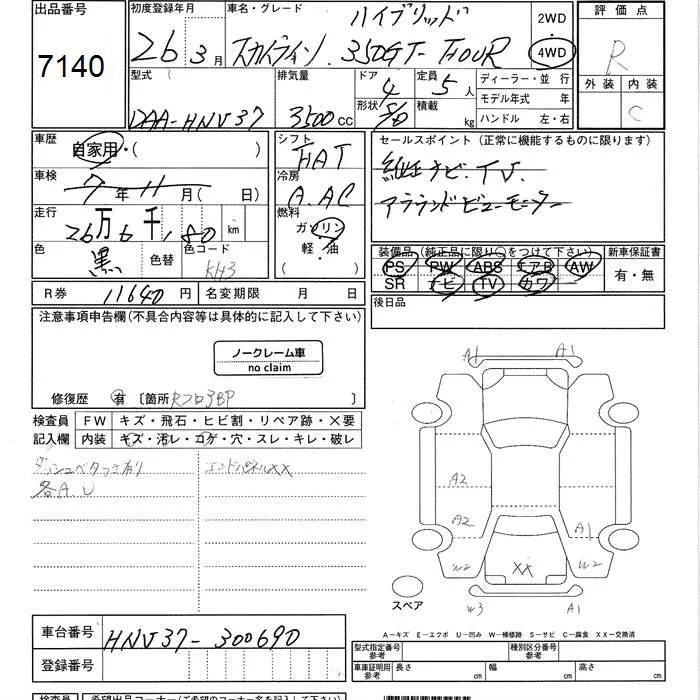 出品番号
7140
初度登録年月
26 3月
車名・グレード
ハイブリッド
スカイライン 350GT-FOUR
2WD
4WD
評価点
R
外装 内装
C
型式
DAA-HNV37
排気量
3500cc
ドア
4
形状
S/D
定員
5人
積載
kg
ディーラー・並行
モデル年式 年
ハンドル 左・右
車歴
自家用・( )
シフト
FAT
セールスポイント (正常に機能するものに限ります)
純正ナビ・TV.
アラウンドビューモニター
車検
7年11月( 日)
冷房
A.AC
走行
26万6千,180km
燃料
ガソリン
軽・油
( )
色
黒
色替
色コード
KH3
装備品 (純正品に限り○をつけて下さい)
PS PW ABS エアB AW
SR ナビ TV カワ
新車保証書
有・無
R券 11640円
名変期限 月 日
後日品
注意事項申告欄(不具合内容等は具体的に記入して下さい)
ノークレーム車
no claim
修復歴 有 〔箇所 Rフロ3BP
検査員
記入欄
FW キズ・飛石・ヒビ割・リペア跡・×要
内装 キズ・汚レ・コゲ・穴・スレ・キレ・破レ
ダッシュベタつき有り
各A.U
エンドパネルXX
A1 A1
A2
A2 A1
W2 XX W2
W3 A1
スペア
A－キズ E－エクボ U－凹み W－補修跡 S－サビ C－腐食 XX－交換済
車台番号
HNV37-300690
登録番号
型式指定番号
参考
種別区分番号
参考
車庫証明用
参考
長さ cm
幅 cm
高さ cm
検査員
希望出品コーナー(ご希望のコーナー名を記入下さい)